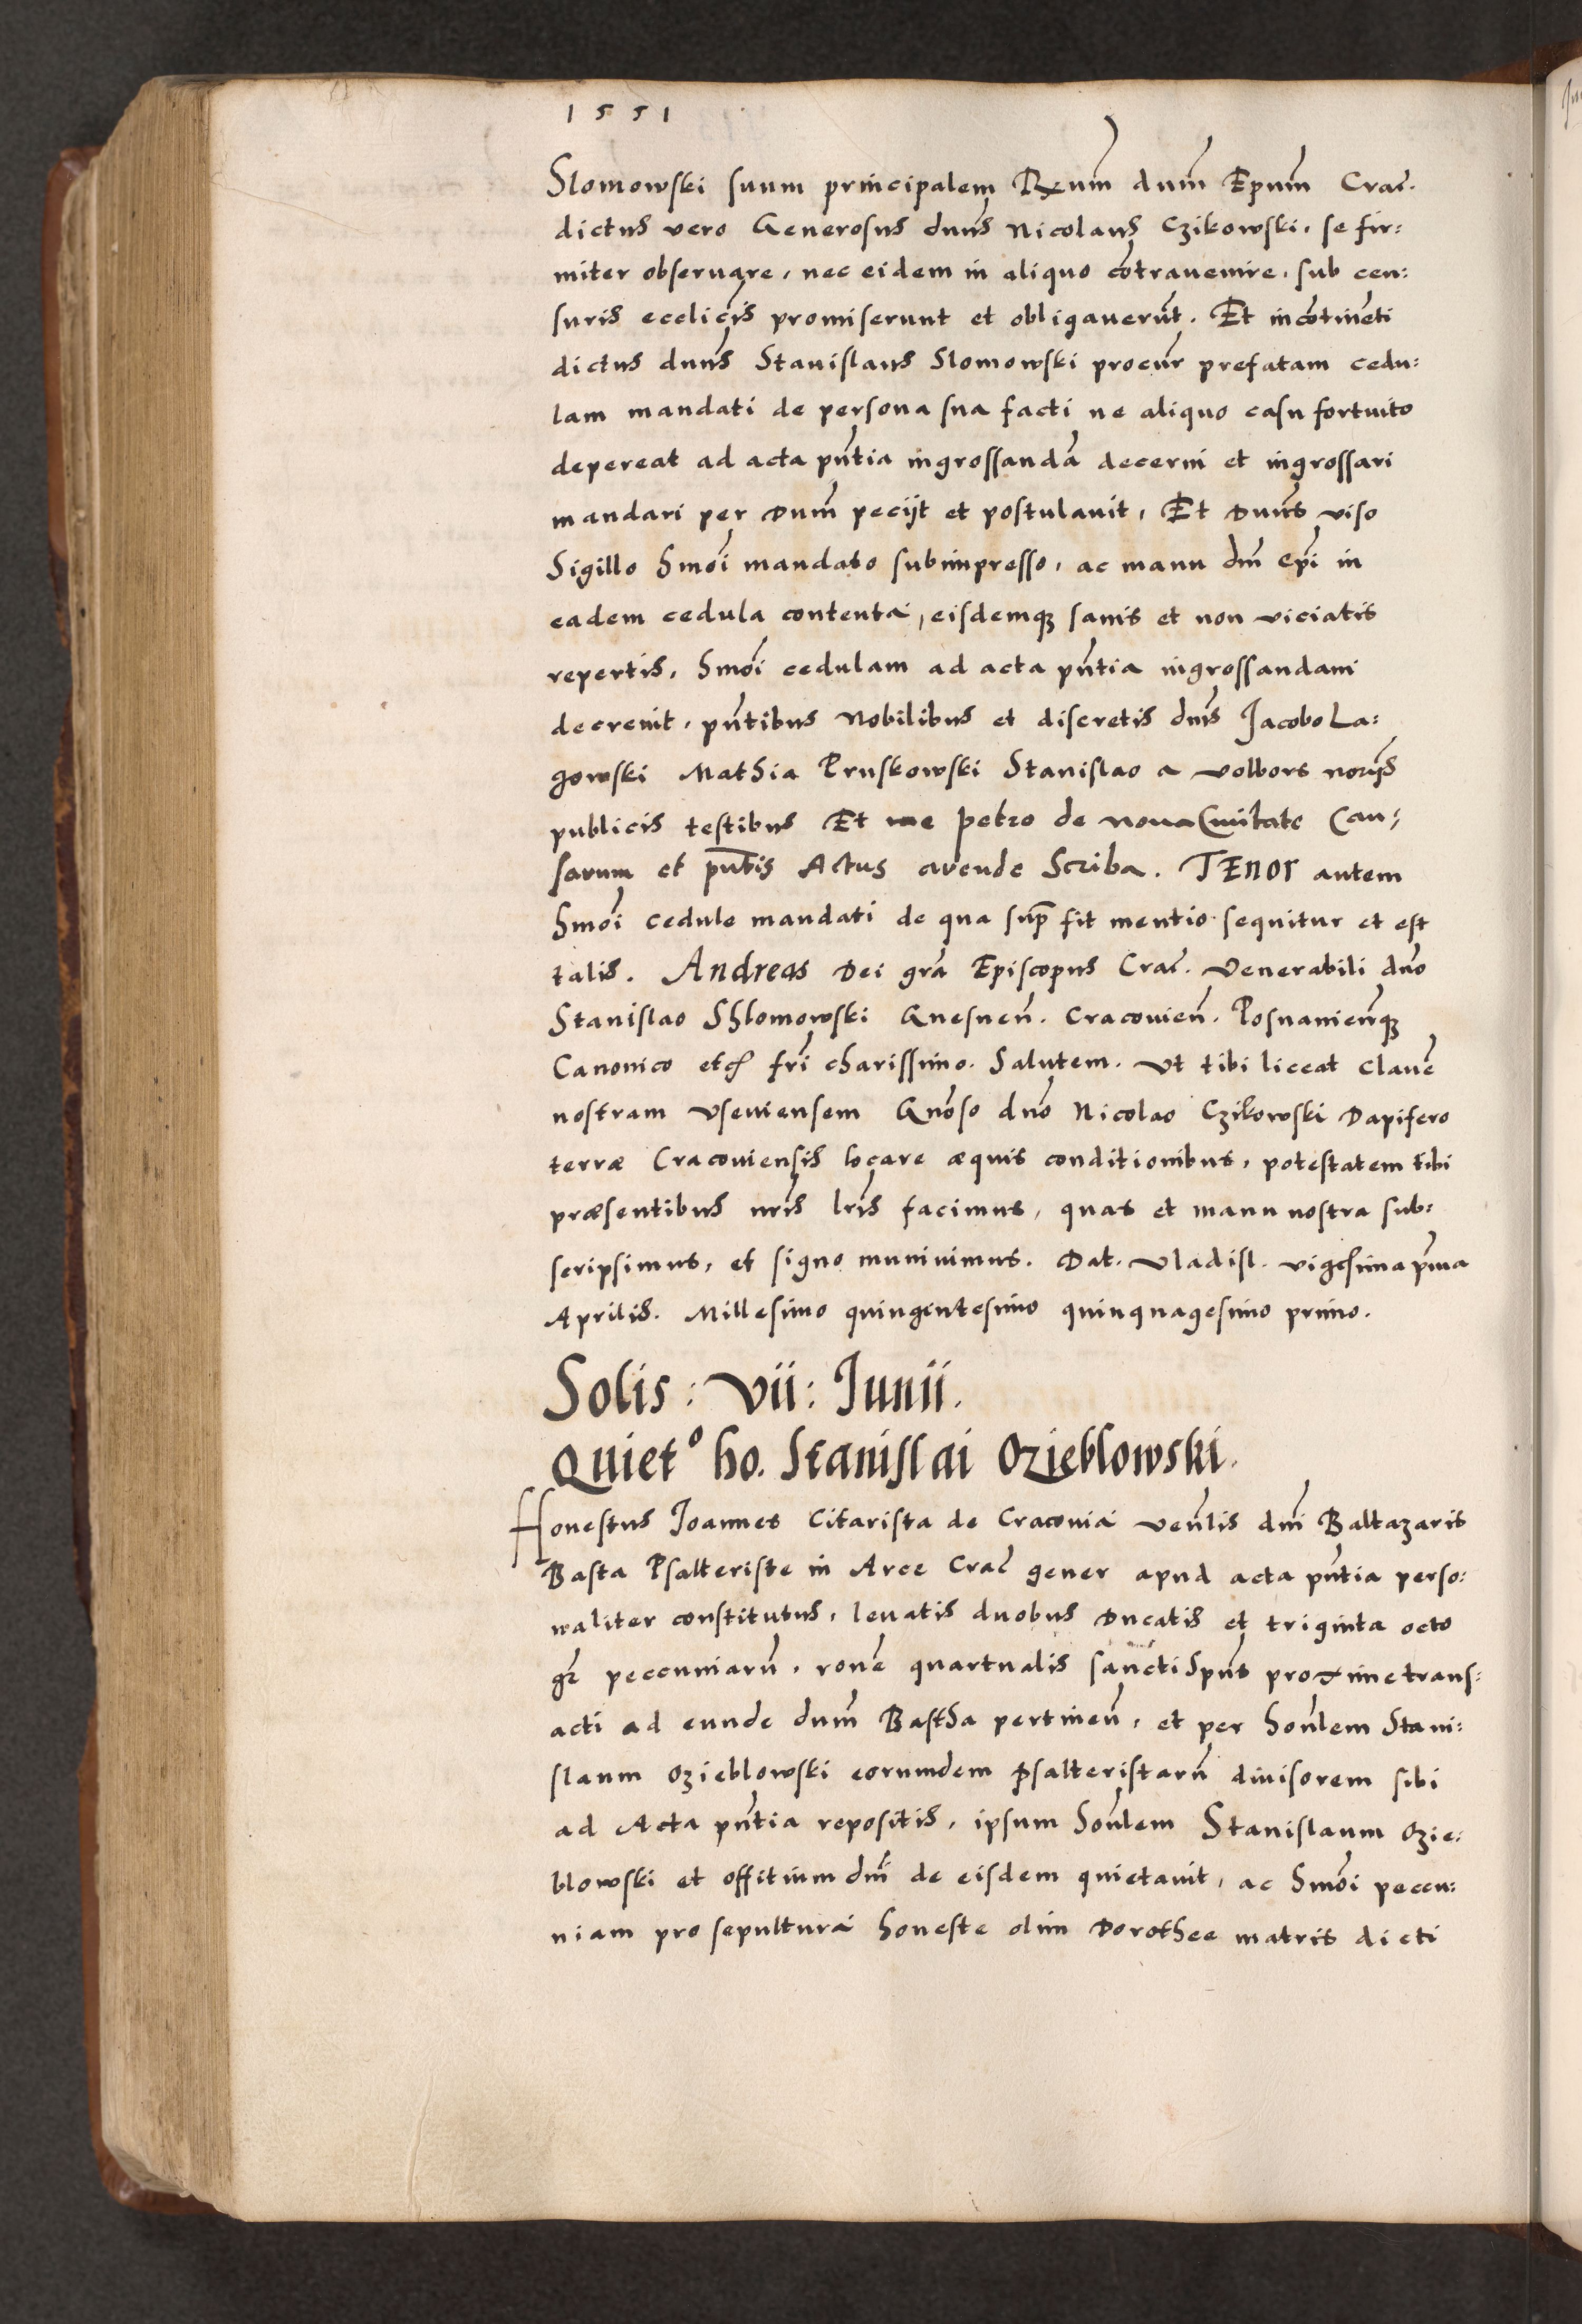 1551
Slomowski suum principalem Rxum̄ dnum̄ Epum̄ Crac̄.
dictus vero Generosus dnus̄ Nicolaus Czikowski, se fir:
miter obseruare, nec eidem in aliquo cōtrauenire, sub cen:
suris eccl̄icis promiserunt et obligauerūt. Et incōtinēti
dictus dnus̄ Stanislaus Slomowski procur̄ prefatam cedu:
lam mandati de persona sua facti ne aliquo casu fortuito
depereat ad acta pn̄tia ingrossandā decerni et ingrossari
mandari per Dnum̄ pecijt et postulauit, Et Dnus̄ viso
Sigillo hmōi mandato subimpresso, ac manu dnī Epī in
eadem cedula contenta, eisdemq₃ sanis et non viciatis
repertis, hmōi cedulam ad acta pn̄tia ingrossandam
decreuit, pn̄tibus Nobilibus et discretis dnis̄ Jacobo La:
gowski Mathia Pruskowski Stanislao a Volbors norijs̄
publicis testibus Et me Petro de Noua Ciuitate Cau:
sarum et pn̄tis Actus arende Scriba. TENOR autem
hmōi cedule mandati de qua sup̄ fit mentio sequitur et est
talis. Andreas Dei grā Episcopus Crac̄. Venerabili dnō
Stanislao Shlomowski Gnesnen̄. Cracouien̄. Posnanien̄q₃
Canonico etc̄ frī charissimo. Salutem. Ut tibi liceat Clauē
nostram Vseuiensem Gnōso dnō Nicolao Czikowski Dapifero
terræ Cracouiensis locare æquis conditionibus, potestatem tibi
præsentibus nris̄ lris̄ facimus, quas et manu nostra sub:
scripsimus, et signo muniuimus. Dat. Vladisl. vigesima pr̄ma
Aprilis. Millesimo quingentesimo quinquagesimo primo.
Solis: vii: Junii.
Quietº ho. Stanislai Ozieblowski.
Honestus Joannes Citarista de Cracouia Venl̄is dnī Baltazaris
Basta Psalteriste in Arce Crac̄ gener apud acta pn̄tia perso:
naliter constitutus, leuatis duobus Ducatis et triginta octo
gr̄ pecuniarū, ronē quartualis sancti Spūs proxime trans:
acti ad eunde dnum̄ Bastha pertinen̄, et per honl̄em Stani:
slaum Ozieblowski eorumdem Psalteristarū diuisorem sibi
ad Acta pn̄tia repositis, ipsum honl̄em Stanislaum Ozie:
blowski et offitium dnī de eisdem quietauit, ac hmōi pecu:
niam pro sepultura honeste olim Dorothee matris dicti